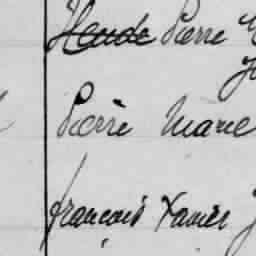 Pierre
Pierre Marie
françois Xavier